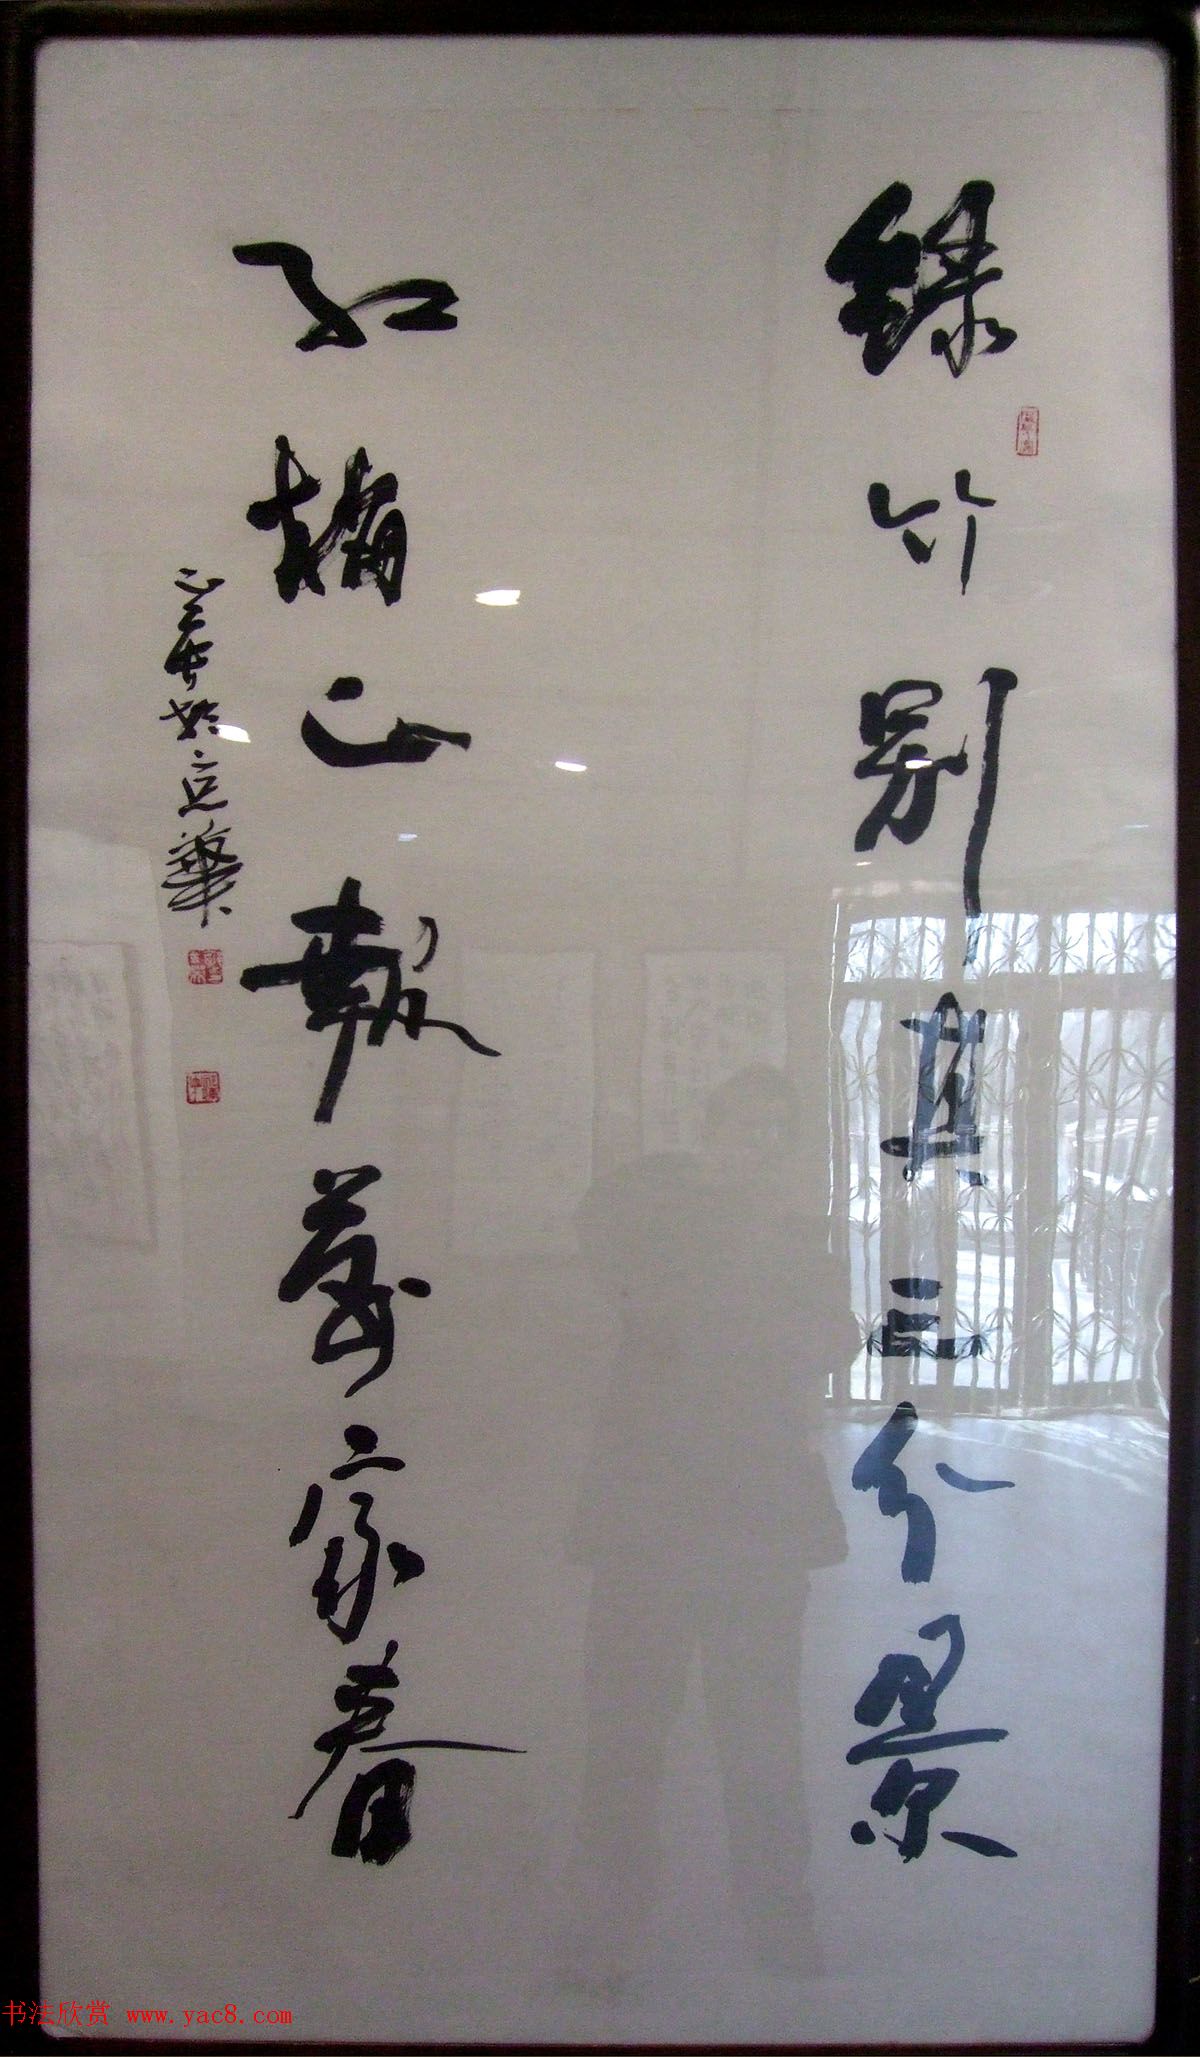 綠竹別具三分景
紅梅正報萬家春
於京華
书法欣赏 www.yac8.com